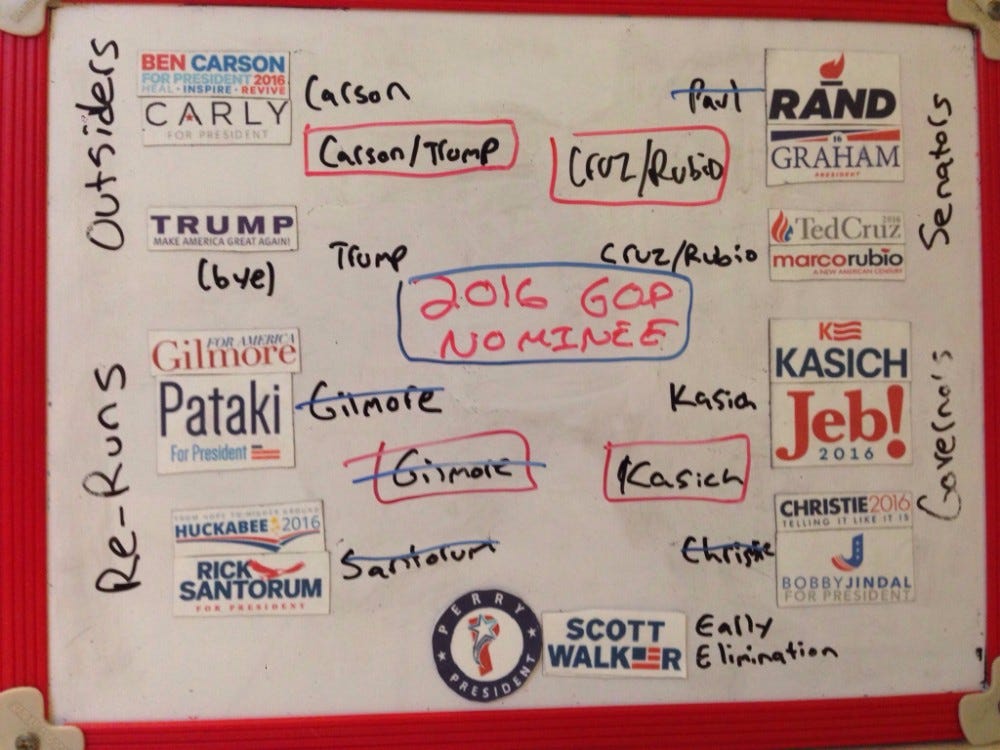 Outsiders
BEN CARSON
FOR PRESIDENT 2016
HEAL • INSPIRE • REVIVE
CARLY
FOR PRESIDENT
Carson
Carson/Trump
TRUMP
MAKE AMERICA GREAT AGAIN!
(bye)
Trump
Paul
RAND
16
GRAHAM
PRESIDENT
Cruz/Rubio
Senators
2016
TedCruz
marcorubio
A NEW AMERICAN CENTURY
Cruz/Rubio
2016 GOP
NOMINEE
Re-Runs
FOR AMERICA
Gilmore
Pataki
For President
Gilmore
Gilmore
FROM HOPE TO HIGHER GROUND
HUCKABEE 2016
RICK
SANTORUM
FOR PRESIDENT
Santorum
K
KASICH
Jeb!
2016
Kasich
Kasich
Governo's
CHRISTIE 2016
TELLING IT LIKE IT IS
Christie
J
BOBBY JINDAL
FOR PRESIDENT
PERRY
PRESIDENT
SCOTT
WALKER
Eally
Elimination